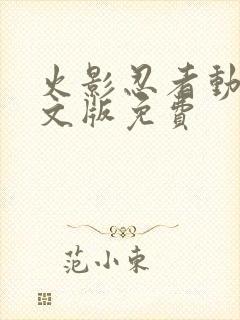 火影忍者動
文版免費
范小東